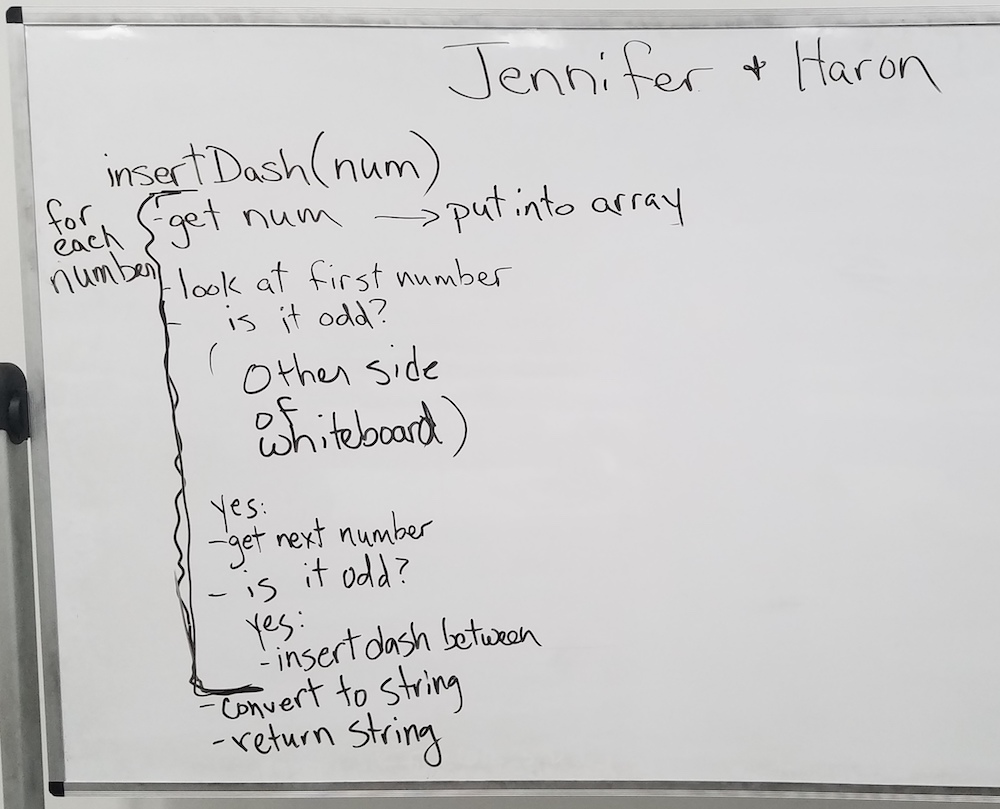 Jennifer + Haron
insertDash(num)
for
each
number
-get num → put into array
-look at first number
- is it odd?
(other side
of
whiteboard)
Yes:
-get next number
- is it odd?
Yes:
-insert dash between
-convert to string
-return string